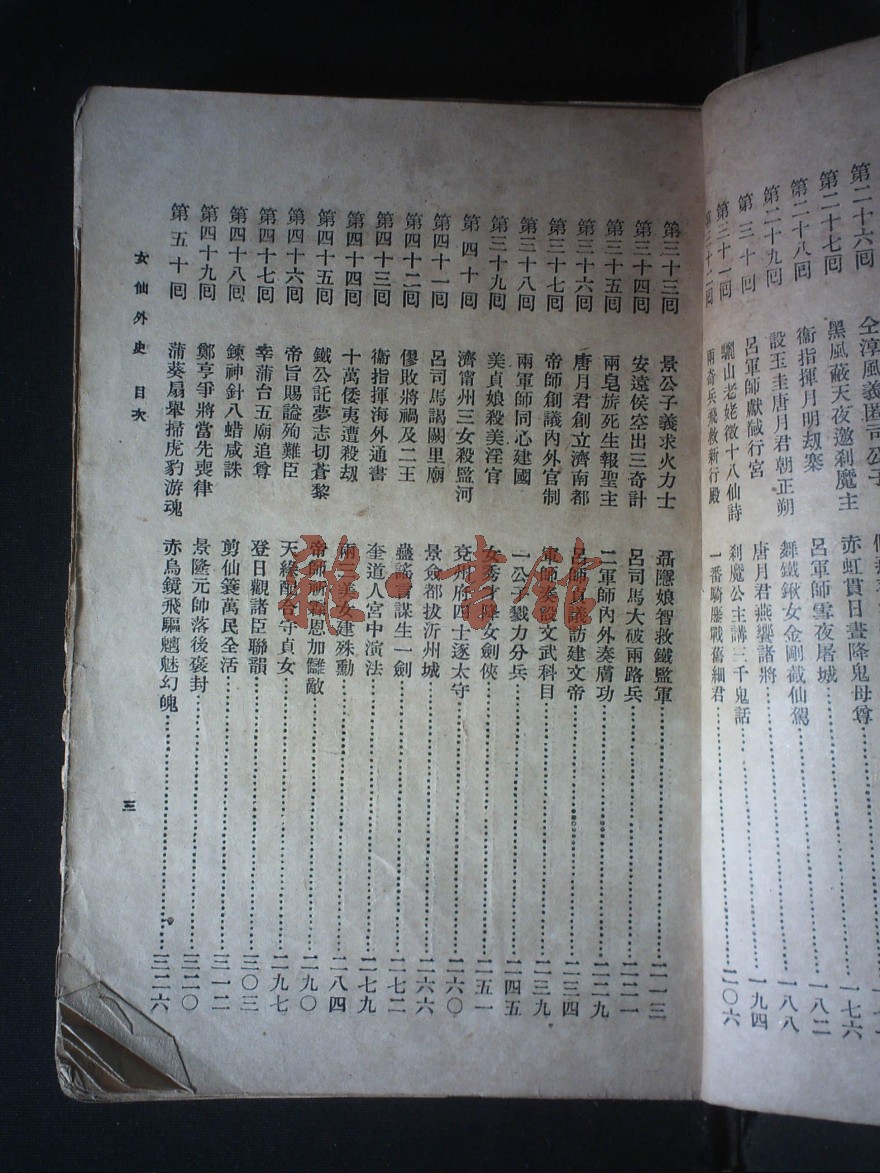 第二十六囘 仝淳風義匿司公子
第二十七囘 黑風蔽天夜邀刹魔主 赤虹貫日晝降鬼母尊 一七六
第二十八囘 衞指揮月明刼寨 呂軍師雪夜屠城 一八二
第二十九囘 設玉圭唐月君朝正朔 舞鐵鍬女金剛截仙駕 一八八
第三十囘 呂軍師獻馘行宮 唐月君燕饗諸將 一九四
第三十一囘 驪山老姥徵十八仙詩 刹魔公主講三千鬼話
第三十二囘 兩奇兵飛救新行殿 一番騎鏖戰舊細君 二〇六
第三十三囘 景公子義求火力士 聶隱娘智救鐵監軍 二一三
第三十四囘 安遠侯空出三奇計 呂司馬大破兩路兵 二二一
第三十五囘 兩皂旂死生報聖主 二軍師內外奏膚功 二二九
第三十六囘 唐月君創立濟南都 呂師貞議訪建文帝 二三四
第三十七囘 帝師創議內外官制 軍師奏設文武科目 二三九
第三十八囘 兩軍師同心建國 一公子戮力分兵 二四五
第三十九囘 美貞娘殺美淫官 女秀才降女劍俠 二五一
第四十囘 濟甯州三女殺監河 兗州府四士逐太守 二六〇
第四十一囘 呂司馬謁闕里廟 景僉都拔沂州城 二六六
第四十二囘 僇敗將禍及二王 蠱謠言謀生一劍 二七二
第四十三囘 衞指揮海外通書 奎道人宮中演法 二七九
第四十四囘 十萬倭夷遭殺刼 兩三美女建殊勳 二八四
第四十五囘 鐵公託夢志切蒼黎 帝師祈霖恩加讎敵 二九〇
第四十六囘 帝旨賜謚殉難臣 天緣配合守貞女 二九七
第四十七囘 幸蒲台五廟追尊 登日觀諸臣聯韻 三〇三
第四十八囘 鍊神針八蜡咸誅 剪仙籜萬民全活 三一二
第四十九囘 鄭亨爭將當先喪律 景隆元帥落後褒封 三二〇
第五十囘 蒲葵扇舉掃虎豹游魂 赤鳥鏡飛驅魑魅幻魄 三二六
女仙外史 目次 三
龍·書館